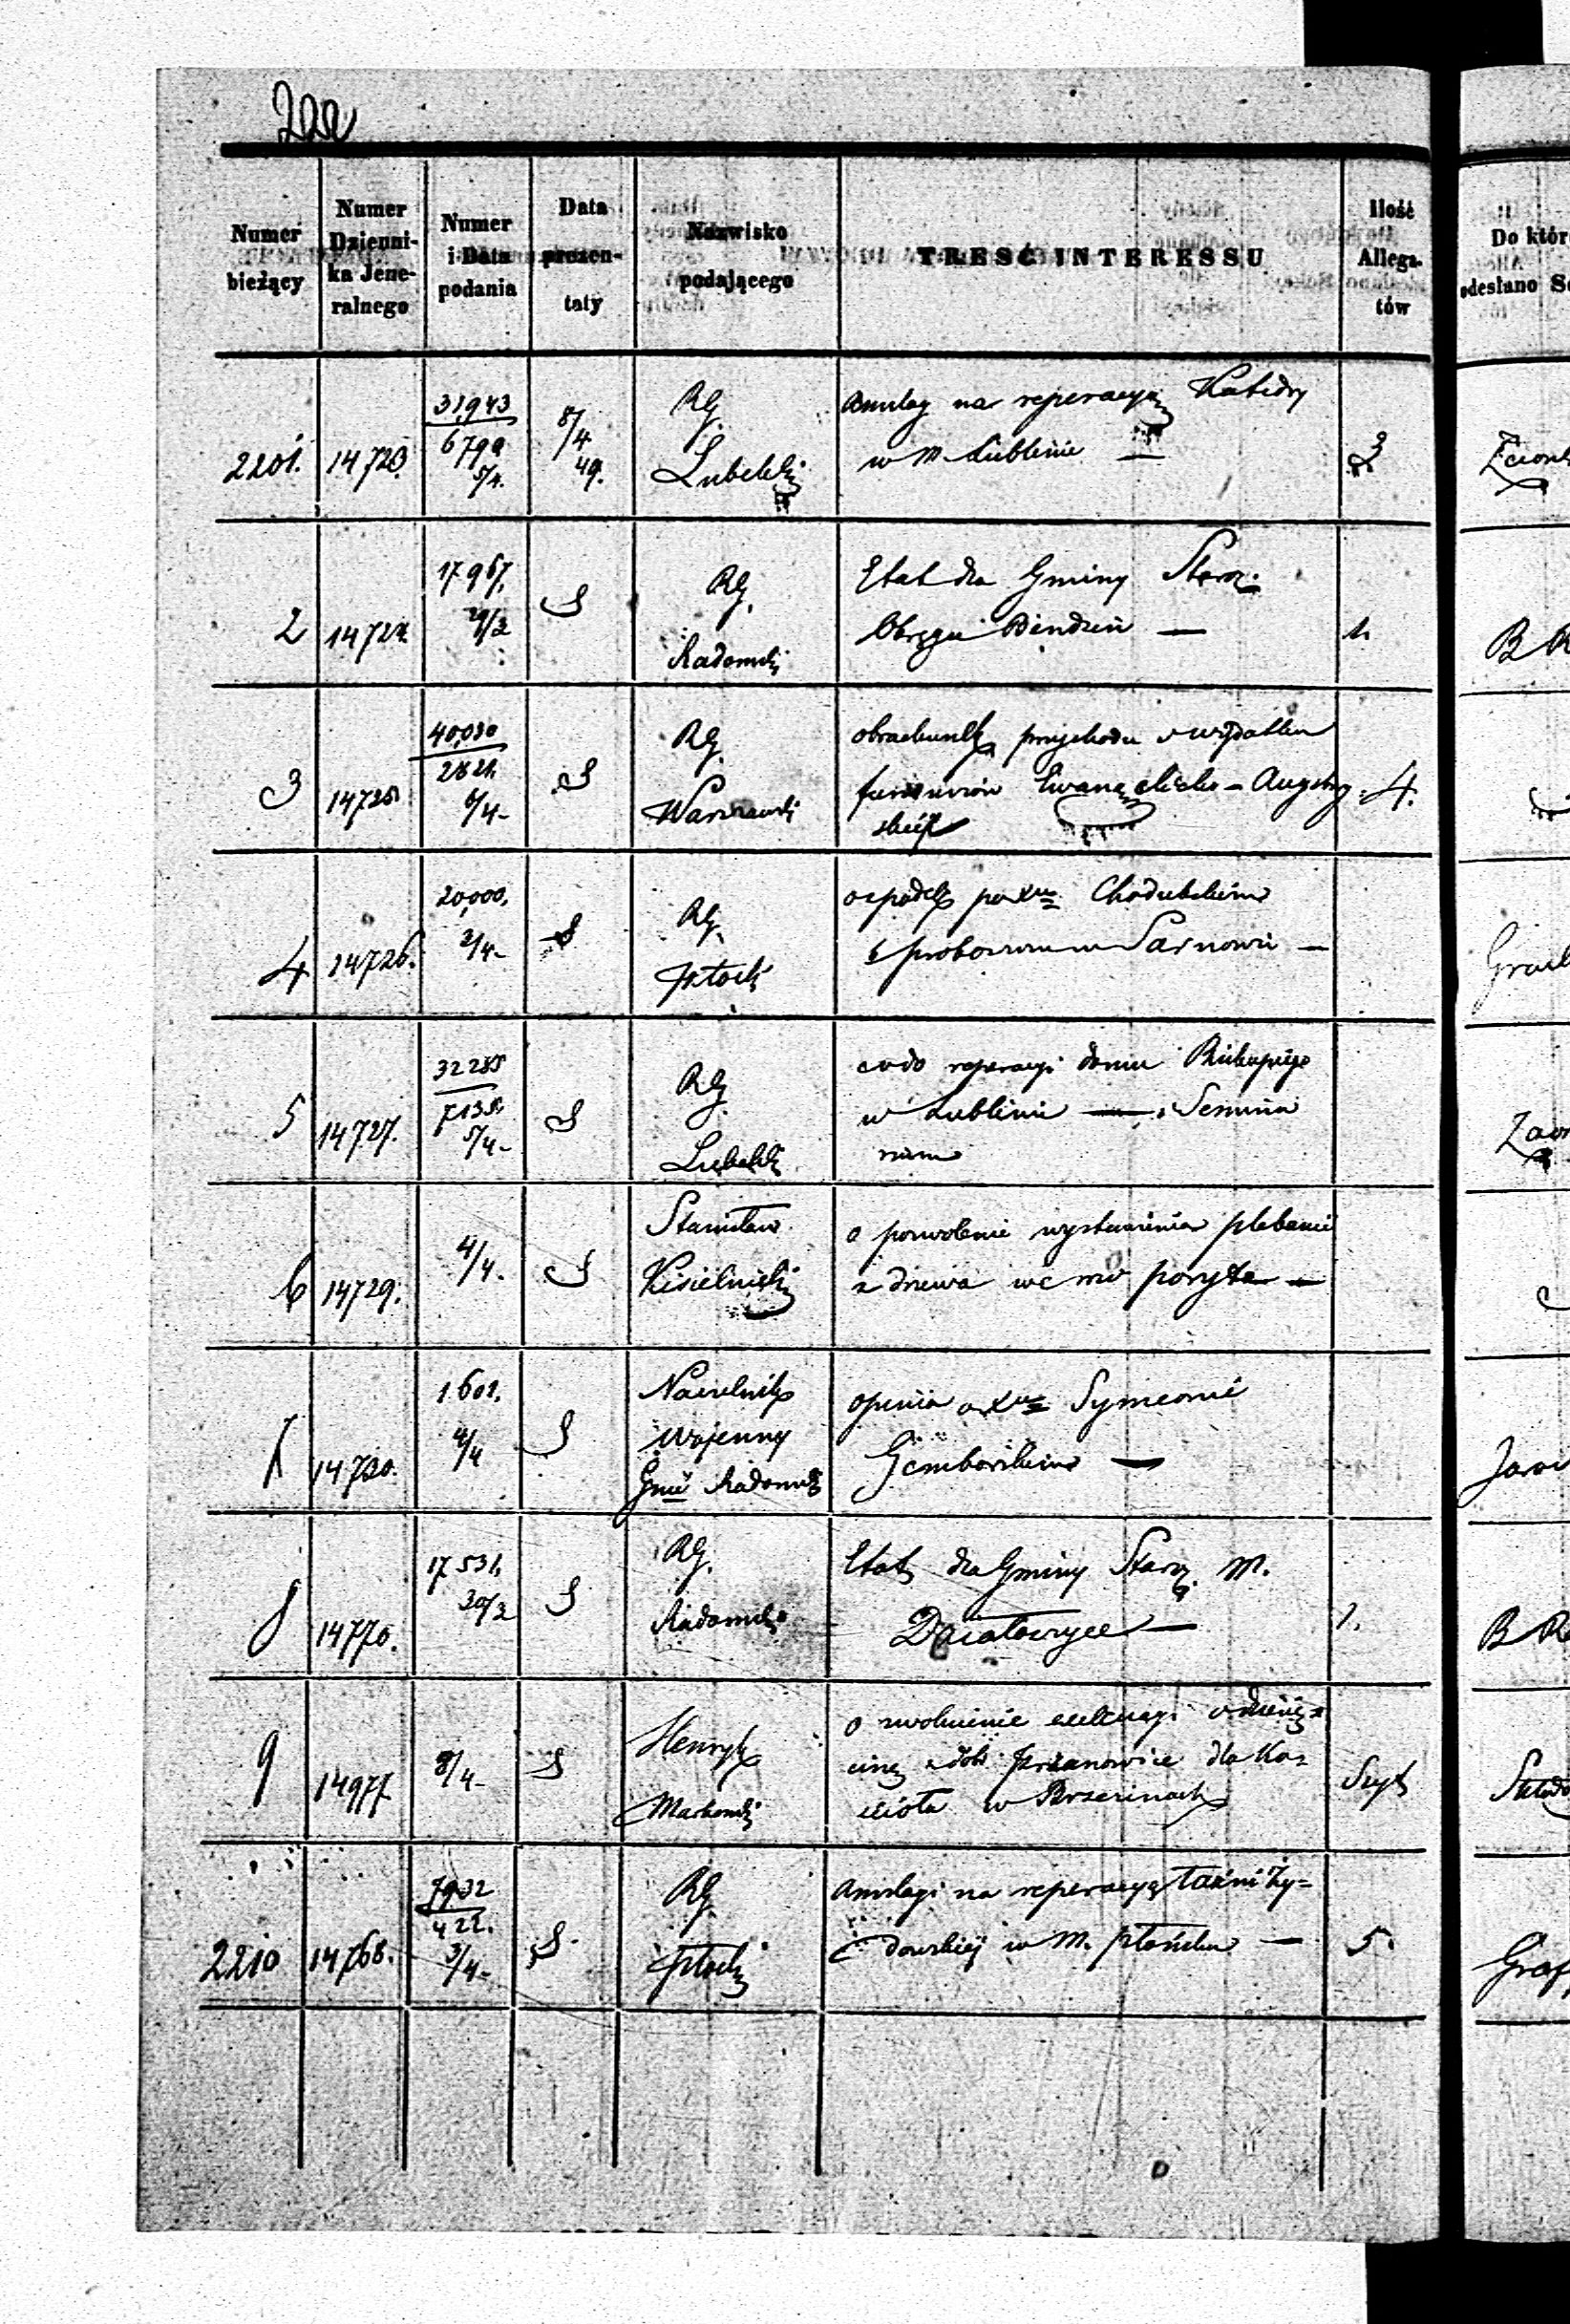 Numer bieżący
Numer Dzienni-ka Jene-ralnego
Numer i Data podania
Data prezen-taty
Nazwisko podającego
TREŚĆ INTERESSU
Ilość Allega-tów
Do któr
odesłano Se
2201. 14723. 31,943 6799 5/4. 8/4 49. RG. Lubelski
Anszlag na reperacyą Katedry
w m. Lublinie — 3
2 14724 17967. 29/3 RG. Radomski
Etat dla Gminy Starz.
Okręgu Bendzin — 1.
3 14725 40,030 2821. 6/4- RG. Warszawski
obrachunki przychodu i wydatku
funduszów Ewangelicko-Augsbur-
skich 4.
4 14726. 20,000. 3/4- RG. Płocki
o spadek po Xu Chodubskim
proboszczu w Sarnowie —
5 14727. 32285 7135. 5/4- RG. Lubelski
co do reperacyi domu Biskupiego
w Lublinie — i Semina
rium
6 14729. 4/4. Stanisław Kisielnicki
o pozwolenie wystawienia plebanii
z drzewa we wsi Poryte —
7 14730. 1601. 4/4 Naczelnik Wojenny Gnii Radomski
opinia o Xu Symeonie
Gemborskim —
8 14770. 17531. 30/3 RG. Radomski
Etat dla Gminy Starz. m.
Działoszyce — 1.
9 14977 8/4- Henryk
o uwolnienie
dóbr dla Ko-
ścioła w Brzezinach
2210 14768. 7932 422. 3/4- RG. Płocki
Anszlagi na reperacyą łaźni ży-
dowskiej w m. Płońsku — 5.